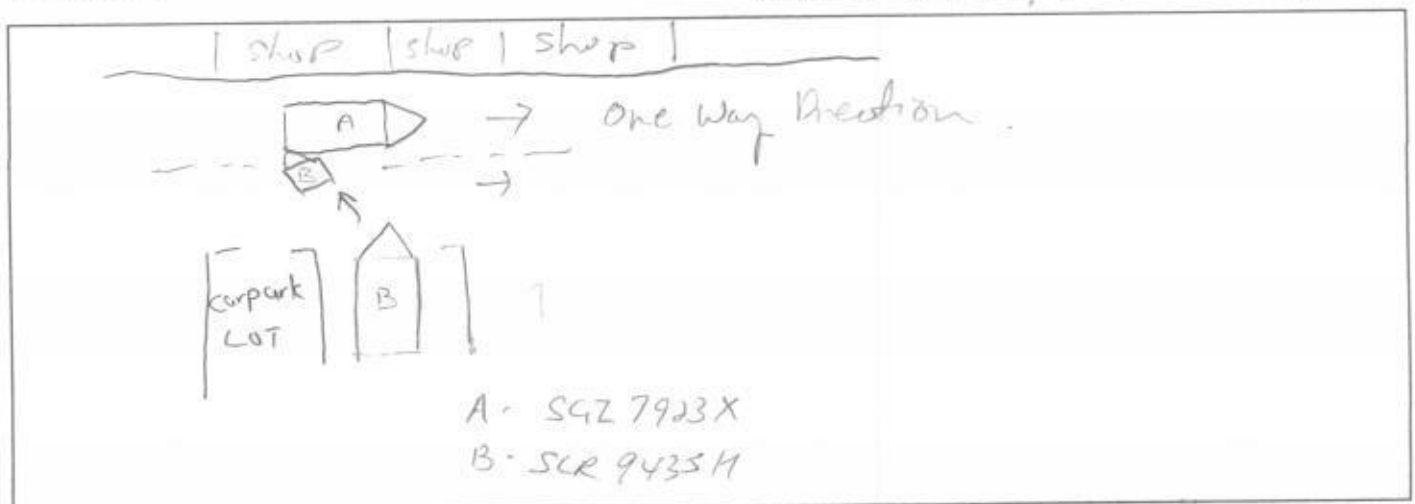 shop shop shop
A → One Way Direction.
B →
carpark B
LOT
A - SGZ 7923X
B - SLR 9435H